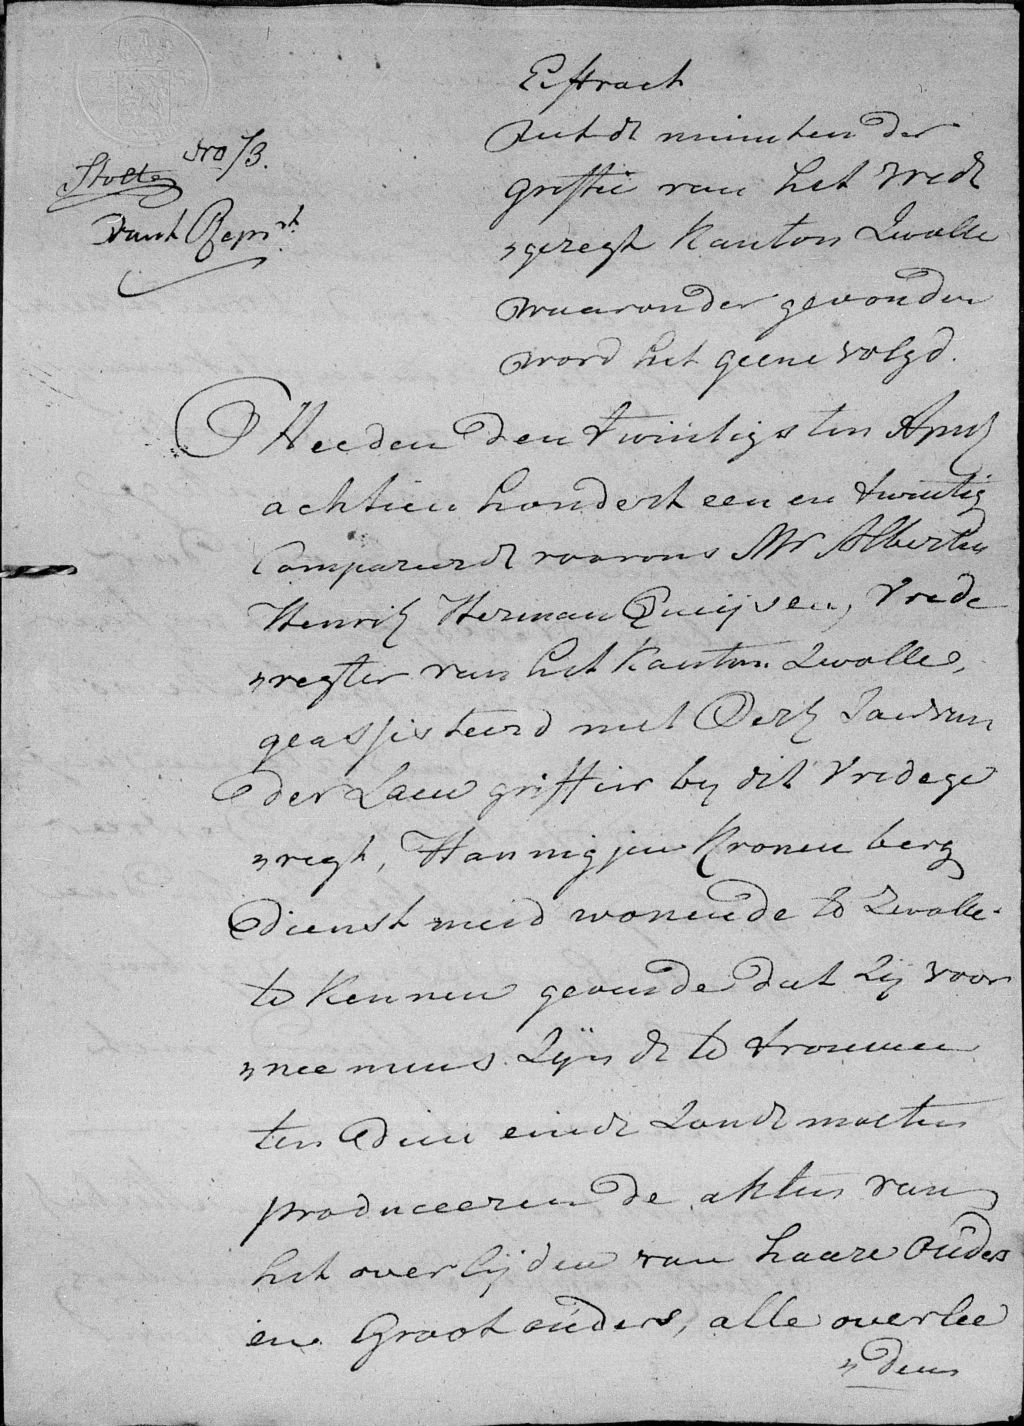 Extract
uit de minuten der
griffie van het vrede
„geregt Kanton Zwolle
waaronder gevonden
word het geene volgd.
No 13.
Heeden den twintigsten April
achtien hondert een en twintig
Compareerde voor ons Mr Albertus
Henrik Herman , Vrede
„regter van het Kanton Zwolle,
geassisteerd met Derk Jan van
der Laen griffier by dit Vredege
„regt, Hannigjen Kronenberg
dienst meid wonende te Zwolle.
te kennen gevende dat Zij voor
„neemens Zijnde te trouwen
ten dien einde Zoude moeten
produceeren de akten van
het overlijden van haare Ouders
en Grootouders, alle overlee
„dene